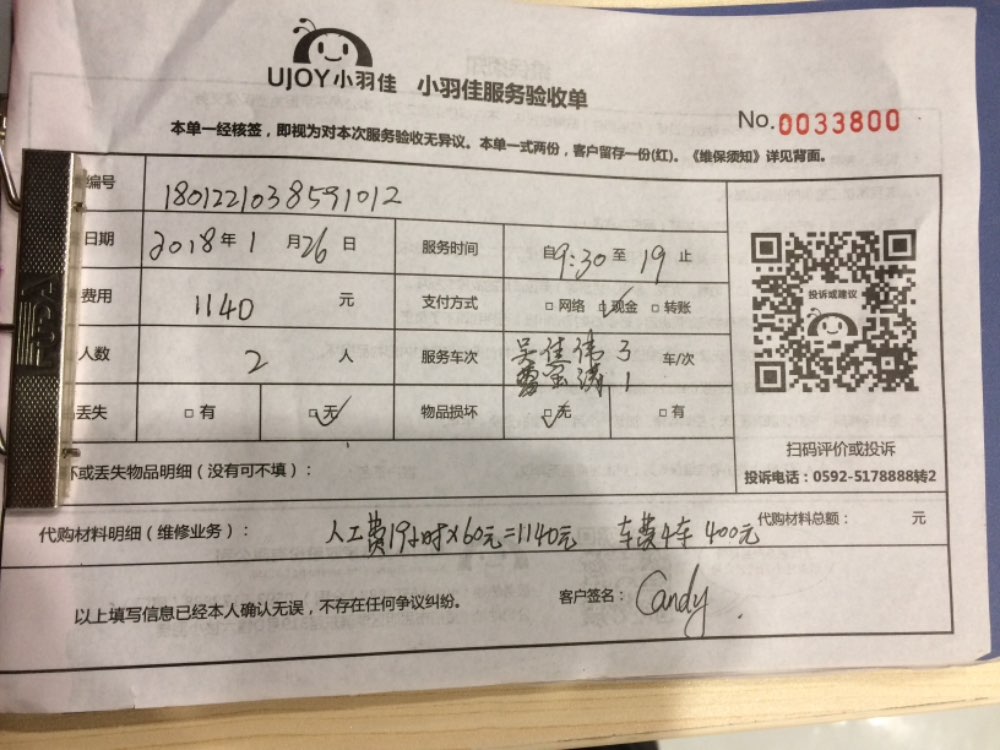 UJOY小羽佳 小羽佳服务验收单
No.0033800
本单一经核签，即视为对本次服务验收无异议。本单一式两份，客户留存一份(红)。《维保须知》详见背面。
编号 1801221038591012
日期 2018年1月26日 服务时间 自9:30至19止
费用 1140元 支付方式 网络 现金 转账
人数 2人 服务车次 吴佳伟 3 车/次
1
丢失 有 无 物品损坏 无 有
投诉或建议
扫码评价或投诉
投诉电话：0592-5178888转2
坏或丢失物品明细（没有可不填）：
代购材料明细（维修业务）： 人工费19小时×60元=1140元 车费4车 400元 代购材料总额： 元
以上填写信息已经本人确认无误，不存在任何争议纠纷。 客户签名：Candy